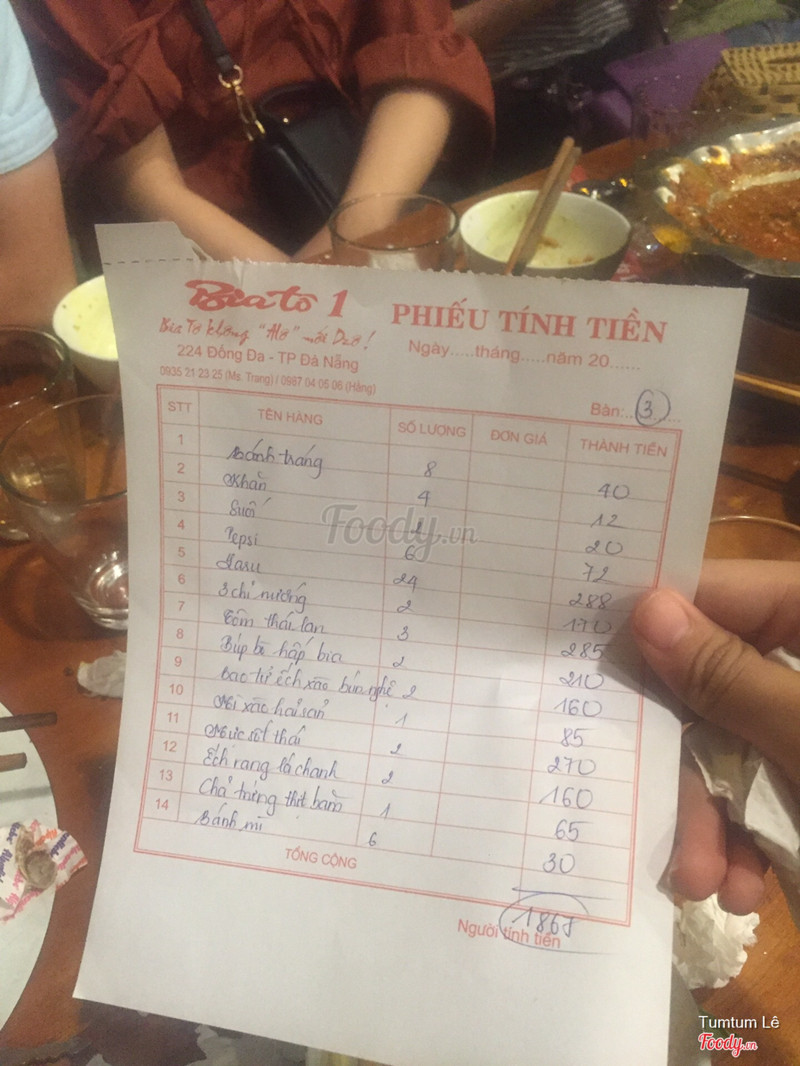 Bia tô 1
Bia Tô không "Alô" mời Dzô!
224 Đống Đa - TP Đà Nẵng
0935 21 23 25 (Ms. Trang) / 0987 04 05 06 (Hằng)
PHIẾU TÍNH TIỀN
Ngày.....tháng.....năm 20......
Bàn:..3......
STT TÊN HÀNG SỐ LƯỢNG ĐƠN GIÁ THÀNH TIỀN
1 Bánh tráng 8 40
2 Khăn 4 12
3 Suối 20
4 Pepsi 6 72
5 24 288
6 3 chỉ nướng 2 170
7 Tôm thái lan 3 285
8 Búp bò hấp bia 2 210
9 Bao tử ếch xào búa nghệ 2 160
10 Mì xào hải sản 1 85
11 Mực sốt thái 2 270
12 Ếch rang lá chanh 2 160
13 Chả trứng thịt bằm 1 65
14 Bánh mì 6 30
TỔNG CỘNG 1867
Người tính tiền
Foody.vn
Tumtum Lê
Foody.vn